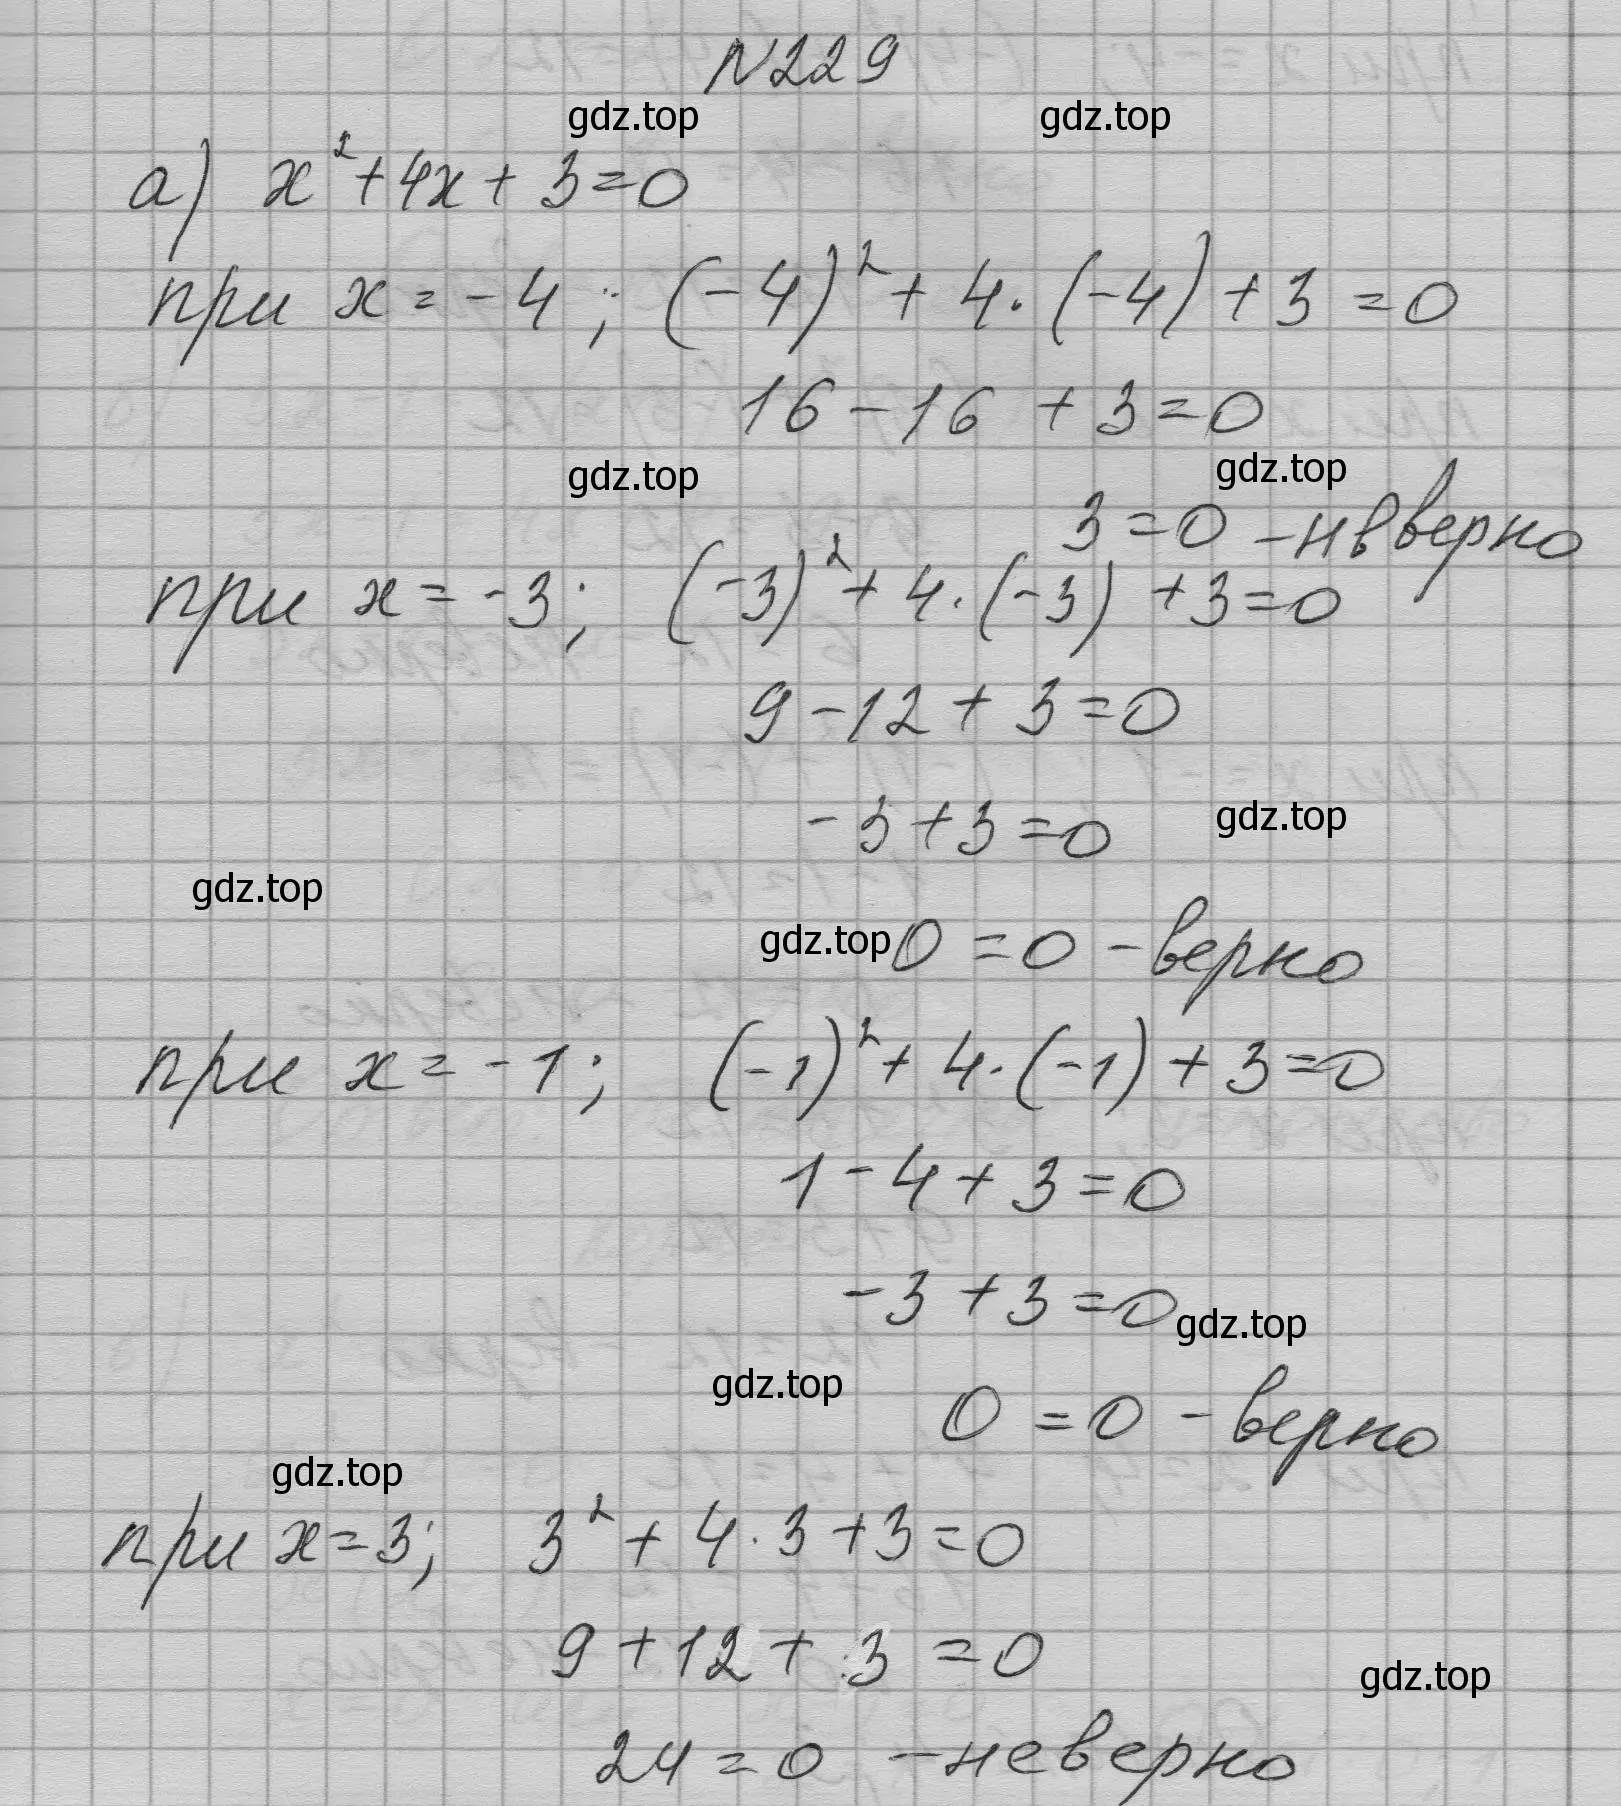 №229
gdz.top gdz.top
а) x²+4x+3=0
при x=-4; (-4)²+4·(-4)+3=0
16-16+3=0
gdz.top gdz.top
3=0 -неверно
при x=-3; (-3)²+4·(-3)+3=0
9-12+3=0
-3+3=0 gdz.top
gdz.top
gdz.top 0=0 -верно
при x=-1; (-1)²+4·(-1)+3=0
1-4+3=0
-3+3=0 gdz.top
gdz.top
0=0 -верно
gdz.top
при x=3; 3²+4·3+3=0
9+12+3=0
gdz.top
24=0 -неверно